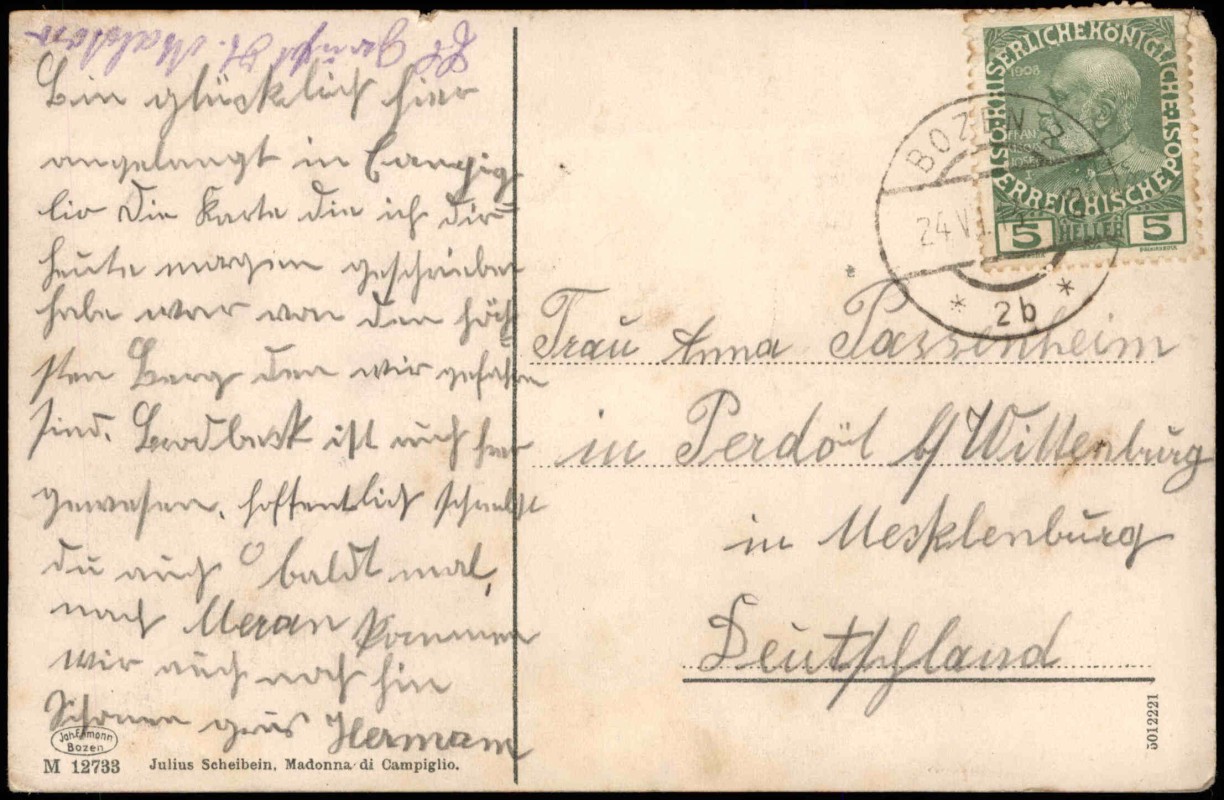 Bin glücklich hier
angelangt in Campig
lio Die Karte die ich dir
heute morgen geschrieben
habe war von den höch
sten Berg den wir gefahren
sind. Brodbeck ist auch hier
gewesen. hoffentlich schreibst
du auch baldt mal,
nach Meran kommen
wir auch noch hin
Schönen grus Hermann
Joh. F. Amonn
Bozen
M 12733 Julius Scheibein, Madonna di Campiglio.
KAISERLICHE KÖNIGLICHE ÖSTERREICHISCHE POST
1908
FRANZ JOSEF I
5 HELLER 5
BOZEN
24 V
* 2b *
Frau Anna Passenheim
in Perdöhl b/Wittenburg
in Mecklenburg
Deutschland
5012221